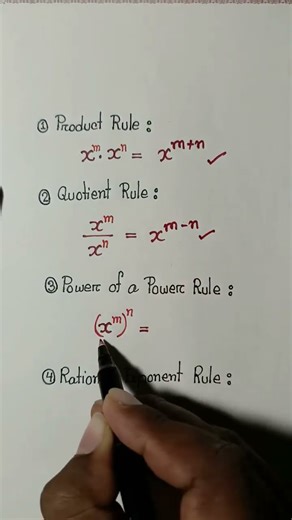 ① Product Rule :
xᵐ · xⁿ = xᵐ⁺ⁿ ✓
② Quotient Rule :
xᵐ / xⁿ = xᵐ⁻ⁿ ✓
③ Power of a Power Rule :
(xᵐ)ⁿ =
④ Rule :